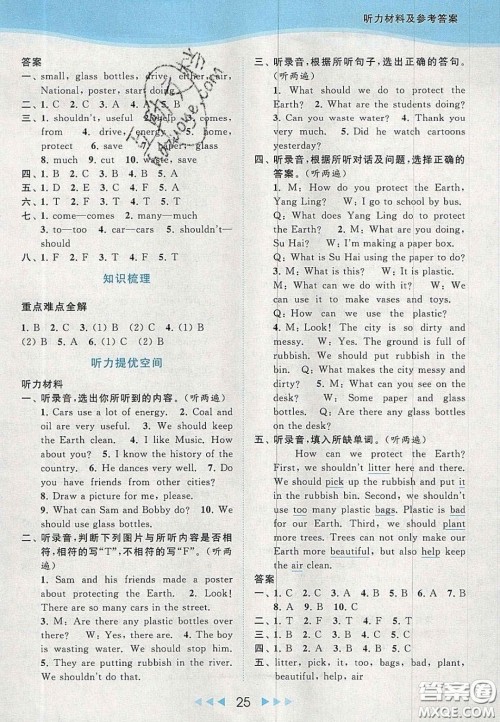 听力材料及参考答案
答案
一、small, glass bottles, drive, either, air,
National, poster, start doing
二、1. C 2. C 3. A 4. A 5. B
三、1. shouldn't, useful 2. help 3. comes,
from 4. drive, energy 5. home,
protect 6. save 7. paper, glass
8. much 9. cut 10. waste, save
四、1. B 2. C 3. C 4. A 5. C
五、1. D 2. E 3. C 4. A 5. B
六、1. T 2. F 3. F 4. F 5. T
七、1. come—comes 2. many—much
3. to—too 4. car—cars 5. shouldn't—
should
八、1. F 2. F 3. T 4. F 5. T
知识梳理
重点难点全解
1. B 2. C 3. (1) B (2) C 4. (1) B
(2) B 5. A 6. (1) C (2) B
听力提优空间
听力材料
一、听录音,选出你所听到的内容。(听两遍)
1. Cars use a lot of energy. 2. Coal and
oil are very useful. 3. We should keep
the Earth clean. 4. I like Music. How
about you? 5. I know the history of
the kingdom. 6. He dances very well.
7. Is there any milk in the fridge?
8. Please draw a picture for me, please.
9. What can Sam and Bobby do? 10. We
should use glass bottles.
二、听录音,判断下列图片与所听内容是否相
符,相符的写“T”,不相符的写“F”。(听
两遍)
1. Sam and his friends made a poster
about protecting the Earth. 2. Look!
There are lots of trees in the forest.
3. M: Are there any glass bottles on the
floor? W: Yes, there are. 4. The boy
is wasting water. We should stop him.
5. They are putting rubbish in the river.
We should stop them.
三、听录音,根据所听句子,选出正确的答句。
(听两遍)
1. What should we do to protect the
Earth? 2. What are the students doing?
3. Can you waste water? 4. Thank you
very much. 5. Did you watch cartoons
yesterday?
四、听录音,根据所听对话及问题,选择正确的
答案。(听两遍)
1. M: How do you protect the Earth,
Yang Ling? W: I go to school by bus.
Q: What does Yang Ling do to protect
the Earth? 2. M: What are you doing,
Su Hai? W: I'm making a paper box.
Q: What is Su Hai using to make the
box? 3. M: What's it? W: It is plastic.
M: What can we do with it? W: We
can use it to make vases and toys.
Q: How can we use the plastic?
4. M: Look! The city is so dirty and
messy. W: Yes. The ground is full of
rubbish. We should put rubbish in the
bin. Q: What makes the city messy
and dirty? 5. M: What's on the desk?
W: Look! There are some glass bottles
on the desk. Q: Are there any glass bottles
on the desk?
五、听录音,填入所缺单词。(听两遍)
How can we protect the Earth?
First, we shouldn't litter here and there.
We should pick up rubbish and put it
in the rubbish bin. Second, we should
not use too many plastic bags. Plastic is bad
for our Earth. Third, we should plant
more trees. Trees can make our Earth
more beautiful, but also help keep
the air clean.
答案
一、1. C 2. A 3. A 4. B 5. B 6. B 7. B
8. A 9. B 10. C
二、1. T 2. F 3. F 4. T 5. T
三、1. C 2. A 3. B 4. C 5. A
四、1. B 2. A 3. B 4. C 5. A
五、litter, pick, it, too, bags, bad, plant,
beautiful, help, air
25
答案圈
MXQE.COM